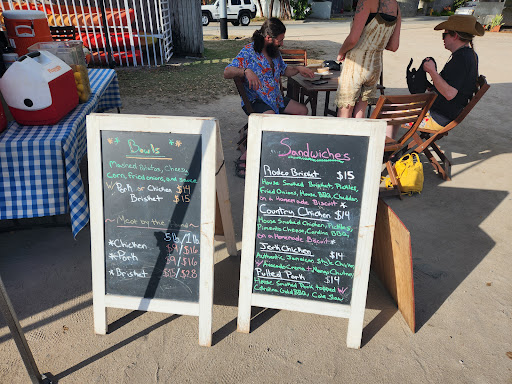 Bowls
Mashed Potatos, Cheese,
Corn, fried onions, and sauce
W/ Pork or Chicken $14
Brisket $15
~ Meat by the
.5 lb / 1 lb
*Chicken $9/$16
*Pork $9/$16
*Brisket $15/$28
Sandwiches
Rodeo Brisket $15
House Smoked Brisket, Pickles,
Fried Onions, House BBQ, Cheddar
on a Homemade Biscuit*
Country Chicken $14
House Smoked Chicken, Pickles,
Pimento Cheese, Carolina BBQ
on a Homemade Biscuit*
Jerk Chicken $14
Authentic Jamaican Style Chicken
W/ Avocado Crema + Mango Chutney
Pulled Pork $14
House Smoked Pork topped W/
Carolina Gold BBQ, Cole Slaw